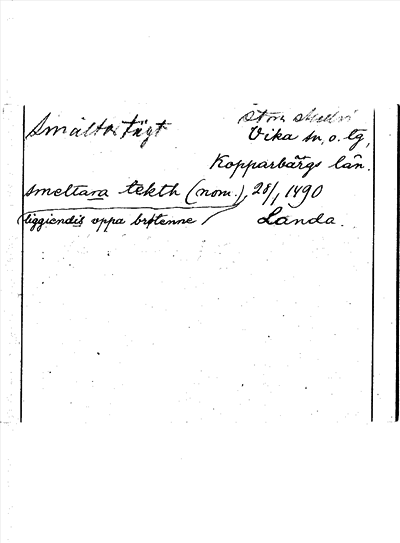 Smälta Tägt
Stora
Vika sn, o. tg,
Kopparbärgs län.
smeltara tekth (nom.), 28/1 1490
liggiendis vppa brøtenne Landa.